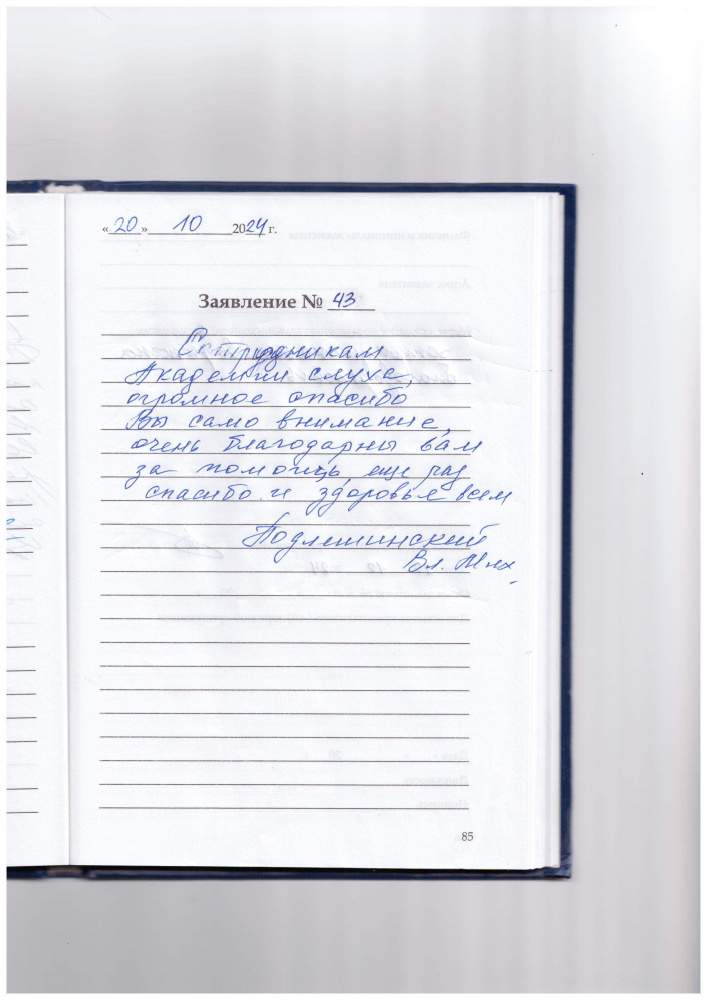 «20» 10 2024 г.
Заявление № 43
Сотрудникам
Академии слуха,
огромное спасибо
Вы само внимание,
очень благодарны вам
за помощь, еще раз
спасибо и здоровья всем
Подлешинский
Вл. Мих.
85